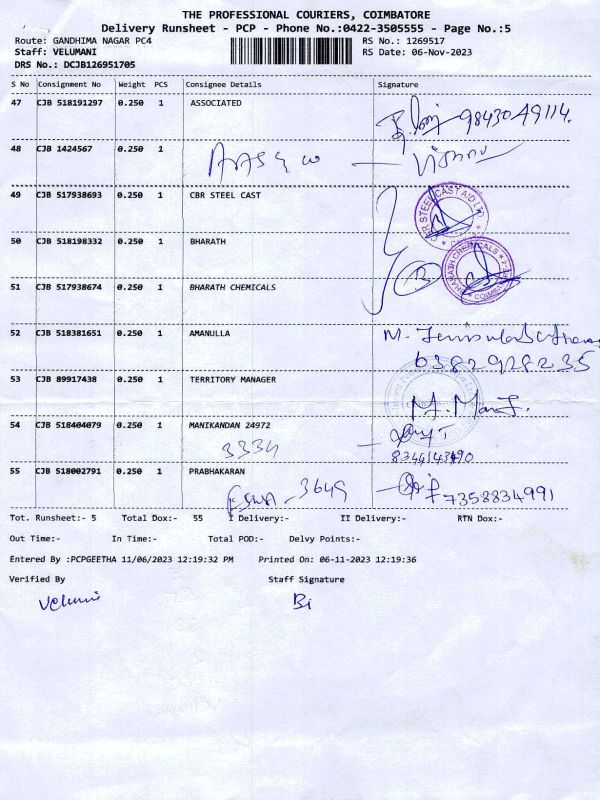 THE PROFESSIONAL COURIERS, COIMBATORE
Delivery Runsheet - PCP - Phone No.:0422-3505555 - Page No.:5
Route: GANDHIMA NAGAR PC4 RS No.: 1269517
Staff: VELUMANI RS Date: 06-Nov-2023
DRS No.: DCJB126951705
S No Consignment No Weight PCS Consignee Details Signature
47 CJB 518191297 0.250 1 ASSOCIATED
9843049114.
48 CJB 1424567 0.250 1
49 CJB 517938693 0.250 1 CBR STEEL CAST
CBR STEEL CAST AID LTD
50 CJB 518198332 0.250 1 BHARATH
BHARATH CHEMICALS
51 CJB 517938674 0.250 1 BHARATH CHEMICALS
52 CJB 518381651 0.250 1 AMANULLA
6382928235
53 CJB 89917438 0.250 1 TERRITORY MANAGER
54 CJB 518404079 0.250 1 MANIKANDAN 24972
3334
8344143490
55 CJB 518002791 0.250 1 PRABHAKARAN
3649 7358834991
Tot. Runsheet:- 5 Total Dox:- 55 I Delivery:- II Delivery:- RTN Dox:-
Out Time:- In Time:- Total POD:- Delvy Points:-
Entered By :PCPGEETHA 11/06/2023 12:19:32 PM Printed On: 06-11-2023 12:19:36
Verified By Staff Signature